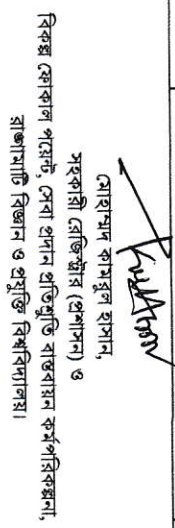 মোহাম্মদ কামরুল হাসান,
সহকারী রেজিস্ট্রার (প্রশাসন) ও
বিকল্প ফোকাল পয়েন্ট, সেবা প্রদান প্রতিশ্রুতি বাস্তবায়ন কর্মপরিকল্পনা,
রাঙ্গামাটি বিজ্ঞান ও প্রযুক্তি বিশ্ববিদ্যালয়।